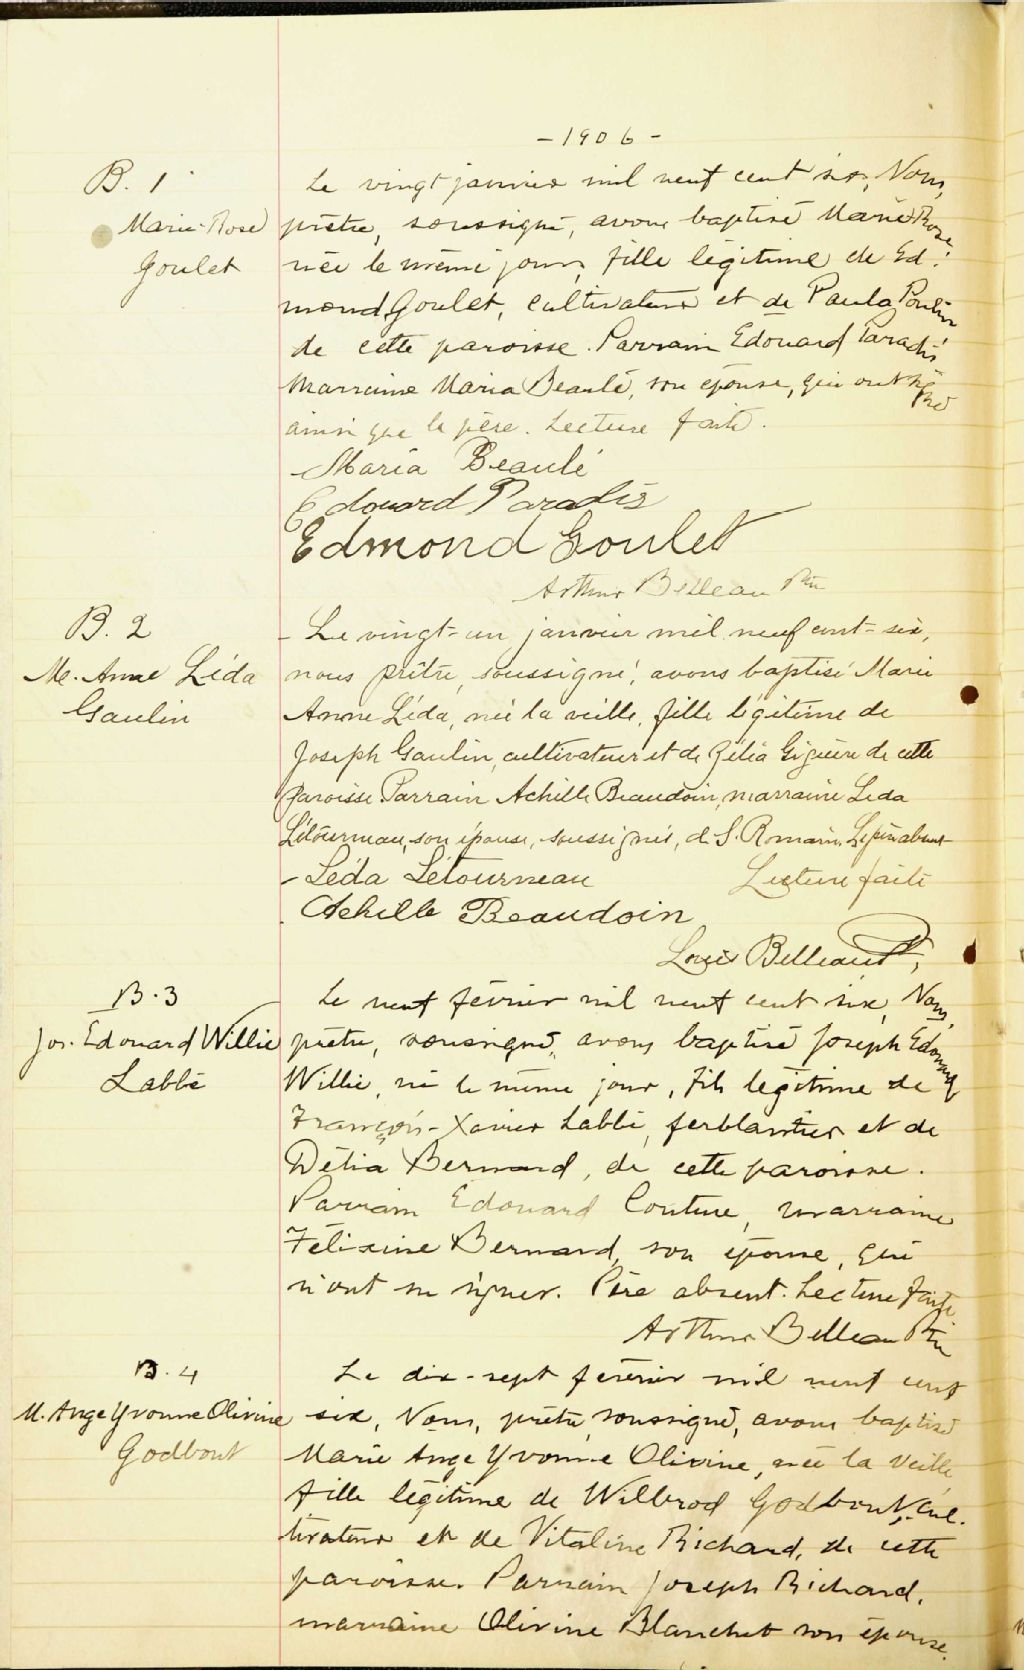 - 1906 -
B. 1
Marie-Rose
Goulet
Le vingt janvier mil neuf cent six, Nous,
prêtre, soussigné, avons baptisé Marie Rose
née le même jour, fille légitime de Ed-
mond Goulet, cultivateur et de Paula Poulin
de cette paroisse. Parrain Edouard Paradis
Marraine Maria Beaulé, son épouse, qui ont signé
ainsi que le père. Lecture faite.
Maria Beaulé
Edouard Paradis
Edmond Goulet
Arthur Belleau Ptre
B. 2
M. Anne Léda
Gaulin
Le vingt-un janvier mil neuf cent-six,
nous prêtre, soussigné, avons baptisé Marie
Anne Léda, née la veille, fille légitime de
Joseph Gaulin, cultivateur et de Zélia Giguère de cette
paroisse. Parrain Achille Beaudoin, marraine Leda
Létourneau, son épouse, soussignés, de S. Romain. Le père absent
Léda Létourneau Lecture faite
Achille Beaudoin
Louis Belleau Ptr,
B. 3
Jos. Edouard Willie
Labbé
Le neuf février mil neuf cent six, Nous,
prêtre, soussigné, avons baptisé Joseph Edouard
Willie, né le même jour, fils légitime de
François-Xavier Labbé, ferblantier et de
Délia Bernard, de cette paroisse.
Parrain Edouard Couture, marraine
Félixine Bernard, son épouse, qui
n'ont su signer. Père absent. Lecture faite
Arthur Belleau Ptre
B. 4
M. Ange Yvonne Olivine
Godbout
Le dix-sept février mil neuf cent
six, Nous, prêtre soussigné, avons baptisé
Marie Ange Yvonne Olivine, née la veille
fille légitime de Wilbrod Godbout, cul-
tivateur et de Vitaline Richard, de cette
paroisse. Parrain Joseph Richard,
marraine Olivine Blanchet son épouse.